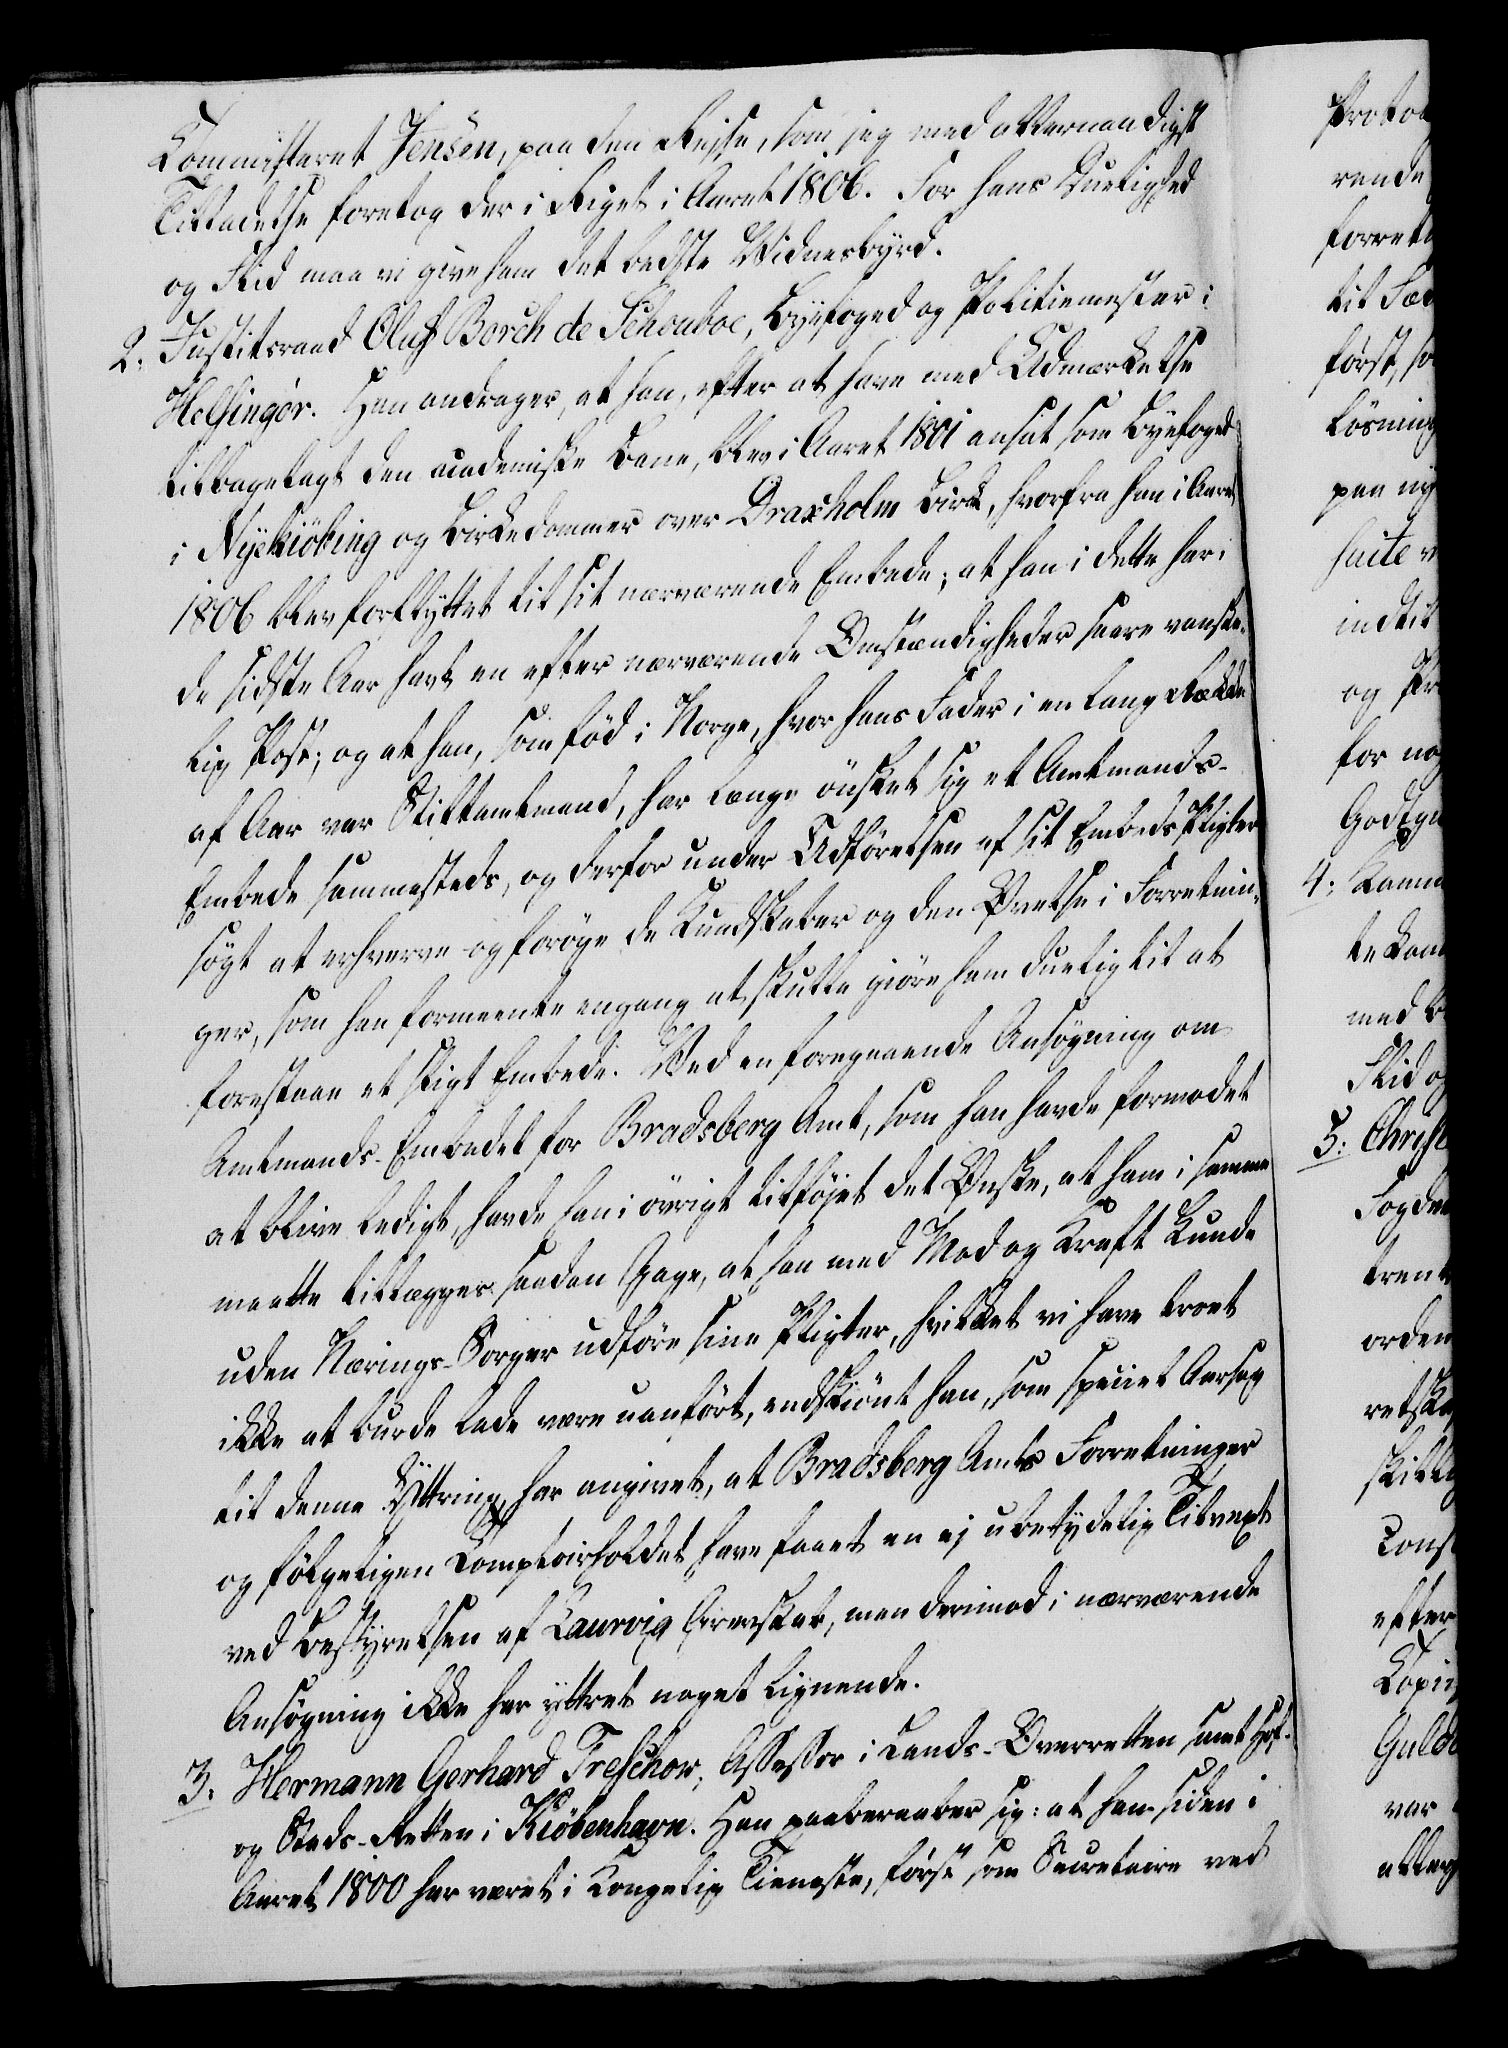 Committeret Jensen, paa den Rejse, som jeg med allernaadigst
Tilladelse foretog der i Riget i Aaret 1806. For hans Duelighed
og Flid maa vi give ham det bedste Vidnesbyrd.
2. Justitsraad Oluf Borch de Schouboe, Byefoged og Politiemester i
Helsingör. Han andrager, at han, efter at have med Udmærkelse
tilbagelagt den academiske Bane, blev i Aaret 1801 ansat som Byefoged
i Nyekiöbing og Birkedommer over Draxholm Birk, hvorfra han i Aaret
1806 blev forflyttet til sit nærværende Embede; at han i dette har i
de sidste Aar havt en efter nærværende Omstændigheder saare vanske-
lig Post; og at han, som föd i Norge, hvor hans Fader i en lang Række
af Aar var Stiftamtmand, har længe önsket sig et Amtmands-
Embede sammesteds, og derfor under Udförelsen af sit Embeds Pligter
sögt at erhverve og foröge de Kundskaber og den Övelse i Forretnin-
ger, som han formeente engang at skulle giöre ham duelig til at
forestaae et sligt Embede. Ved en foregaaende Ansögning om
Amtmands-Embedet for Bradsberg Amt, som han havde formodet
at blive ledigt, havde han i övrigt tilföjet det Önske, at ham i samme
maatte tillægges saadan Gage, at han med Mod og Kraft kunde
uden Nærings-Sorger udföre sine Pligter, hvilket vi have troet
ikke at burde lade være uanfört, endskiönt han, som speciel Aarsag
til denne Yttring, har angivet, at Bradsberg Amts Forretninger
og fölgeligen Comptoirholdet have faaet en ej ubetydelig Tilvext
ved Bestyrelsen af Laurvig Grevskab, men derimod i nærværende
Ansögning ikke har yttret noget lignende.
3. Hermann Gerhard Treschow, Assessor i Lands-Overretten samt Hof-
og Stads-Retten i Kiöbenhavn. Han paaberaaber sig: at han siden i
Aaret 1800 har været i Kongelig Tieneste, först som Secretaire ved
Protoc
rende
forretn
til Sæ
först, so
lösning
paa ny
suite v
indtil
og Pr
for no
Godtgi
4. Kamm
te Kam
med b
Flid og
5. Christ
Fogder
trent
orden
retska
skill
Const
efter
Copii
Guld
var
allerg